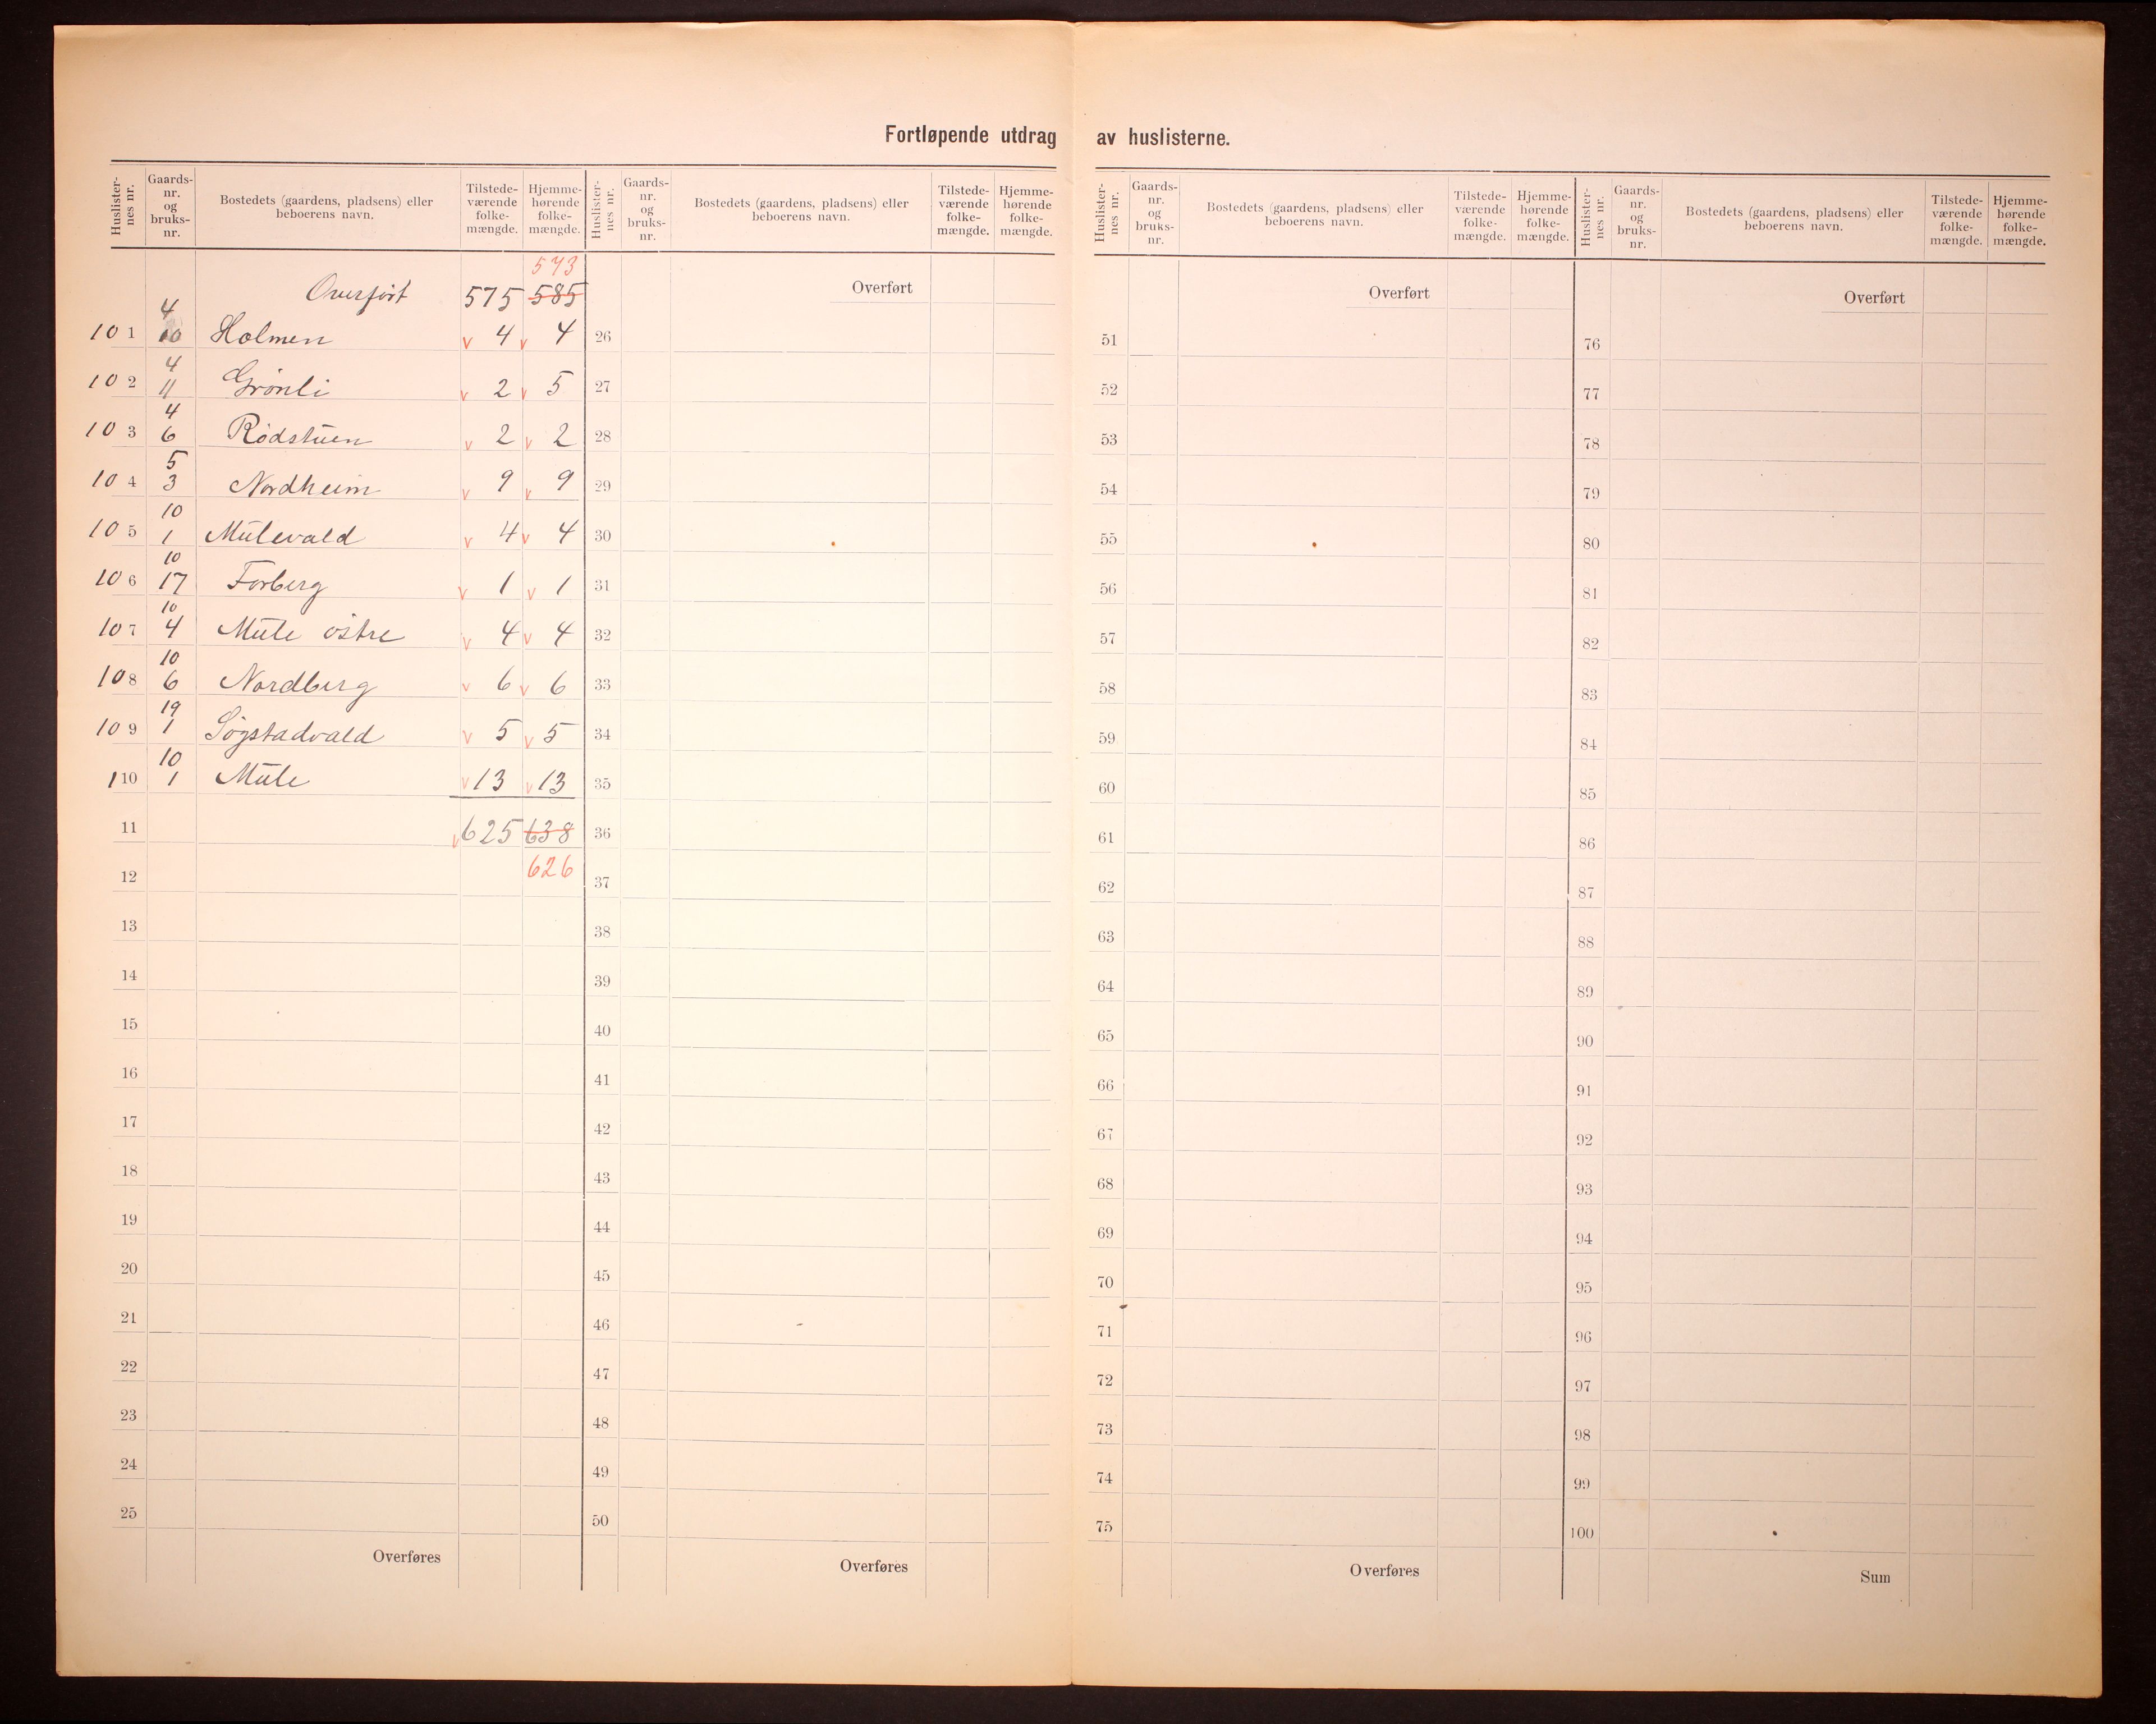 Fortløpende utdrag av huslisterne.
Huslisternes nr. Gaards-nr. og bruks-nr. Bostedets (gaardens, pladsens) eller beboerens navn. Tilstede-værende folke-mængde. Hjemme-hørende folke-mængde.
Huslisternes nr. Gaards-nr. og bruks-nr. Bostedets (gaardens, pladsens) eller beboerens navn. Tilstede-værende folke-mængde. Hjemme-hørende folke-mængde.
Huslisternes nr. Gaards-nr. og bruks-nr. Bostedets (gaardens, pladsens) eller beboerens navn. Tilstede-værende folke-mængde. Hjemme-hørende folke-mængde.
Huslisternes nr. Gaards-nr. og bruks-nr. Bostedets (gaardens, pladsens) eller beboerens navn. Tilstede-værende folke-mængde. Hjemme-hørende folke-mængde.
573
Overført 575 585
101 4 10 Holmen v 4 v 4
102 4 11 Grönli v 2 v 5
103 4 6 Rødstuen v 2 v 2
104 5 3 Nordheim v 9 v 9
105 10 1 Mulevald v 4 v 4
106 10 17 Forberg v 1 v 1
107 10 4 Mule østre v 4 v 4
108 10 6 Nordberg v 6 v 6
109 19 1 Søgstadvald v 5 v 5
110 10 1 Mule v 13 v 13
11 v 625 638
12 626
13
14
15
16
17
18
19
20
21
22
23
24
25
Overføres
Overført
26
27
28
29
30
31
32
33
34
35
36
37
38
39
40
41
42
43
44
45
46
47
48
49
50
Overføres
Overført
51
52
53
54
55
56
57
58
59
60
61
62
63
64
65
66
67
68
69
70
71
72
73
74
75
Overføres
Overført
76
77
78
79
80
81
82
83
84
85
86
87
88
89
90
91
92
93
94
95
96
97
98
99
100
Sum